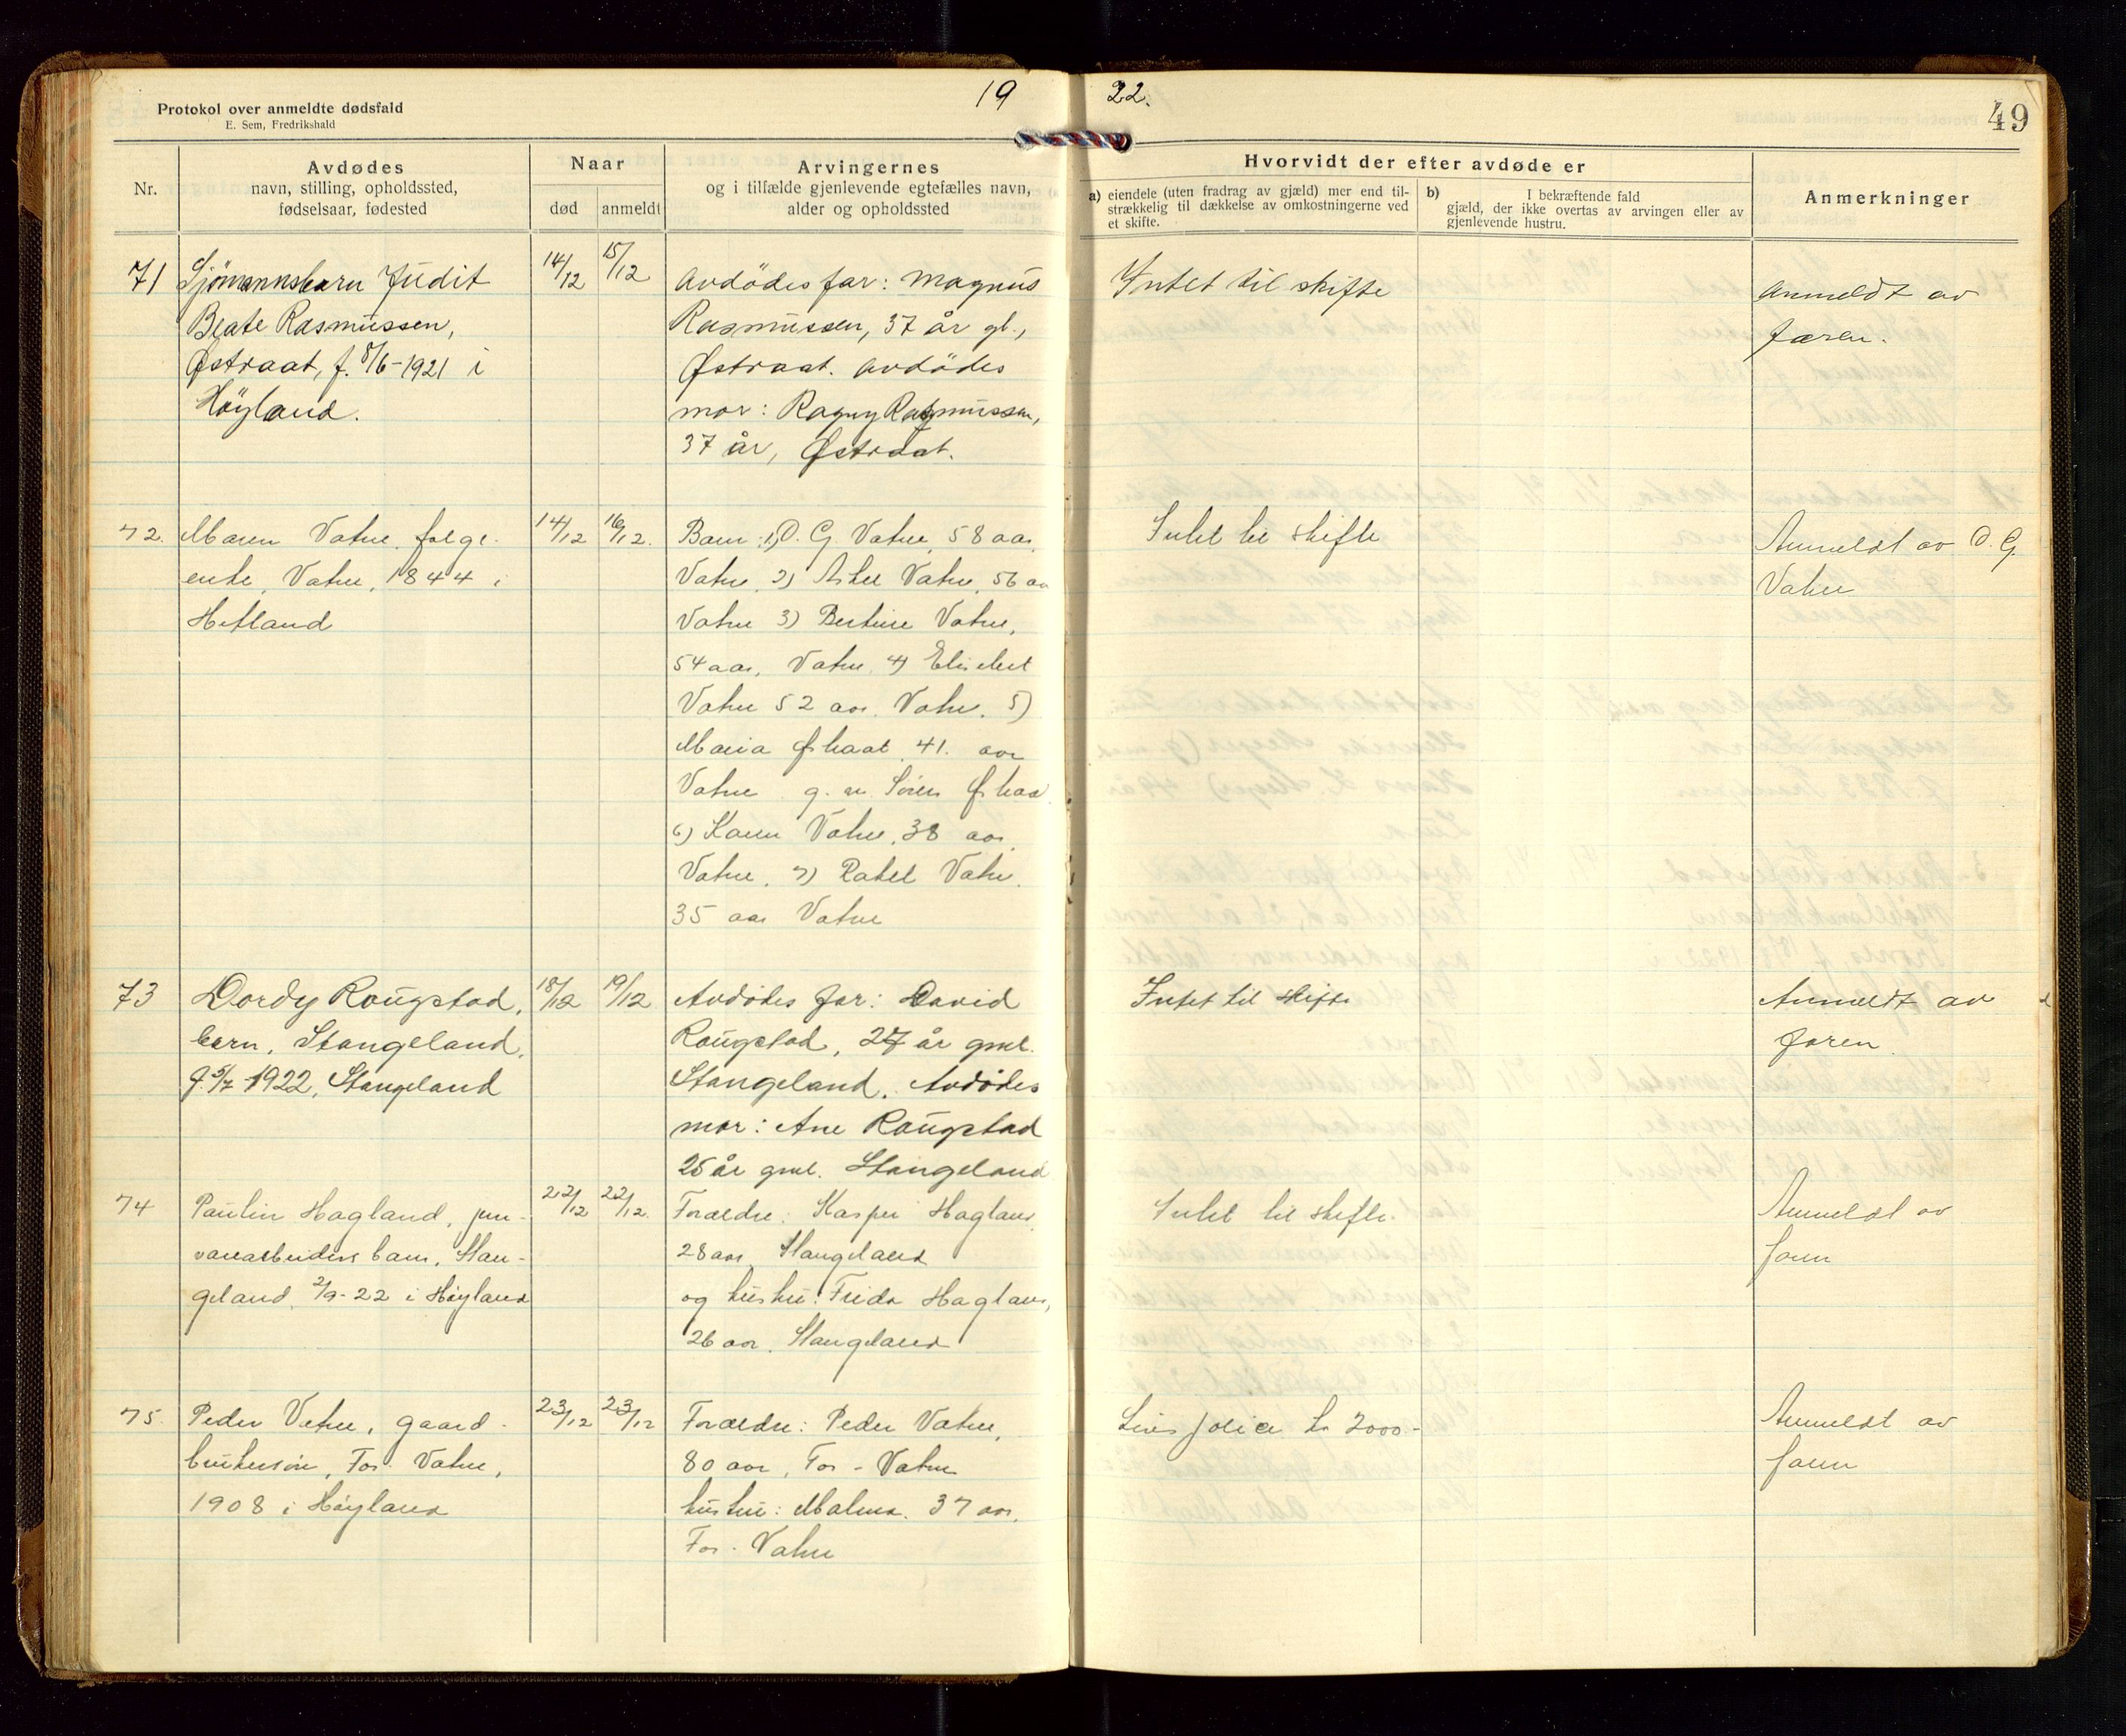 19 22.
49
Protokol over anmeldte dødsfald
E. Sem, Fredrikshald
Nr.
Avdødes
navn, stilling, opholdssted,
fødselsaar, fødested
Naar
død
anmeldt
Arvingernes
og i tilfælde gjenlevende egtefælles navn,
alder og opholdssted
Hvorvidt der efter avdøde er
a) eiendele (uten fradrag av gjæld) mer end til-
strækkelig til dækkelse av omkostningerne ved
et skifte.
b) I bekræftende fald
gjæld, der ikke overtas av arvingen eller av
gjenlevende hustru.
Anmerkninger
71
Sjömannsbarn Judit
Beate Rasmussen,
Østraat, f. 8/6-1921 i
Höyland.
14/12
15/12
Avdödes far: Magnus
Rasmussen, 37 år gl.,
Østraat. Avdödes
mor: Ragny Rasmussen,
37 år, Østraat.
Intet til skifte
Anmeldt av
faren.
72.
Maren Vatne, folge-
enke, Vatne, 1844 i
Hetland
14/12
16/12.
Barn: 1) O. G. Vatne, 58 aar,
Vatne, 2) Vatne, 56 aar
Vatne 3) Bertine Vatne,
54 aar, Vatne 4) Elisabet
Vatne 52 aar. Vatne. 5)
Maria Østraat, 41. aar
Vatne g. m. Sören Østraat
6) Karen Vatne, 38 aar,
Vatne, 7) Rakel Vatne.
35 aar Vatne
Intet til skifte
Anmeldt av O. G.
Vatne
73
Dordy Rougstad,
barn, Stangeland,
f. 5/7 1922, Stangeland
18/12
19/12
Avdödes far: David
Rougstad, 27 år gml.
Stangeland. Avdödes
mor: Ane Rougstad
25 år gml. Stangeland
Intet til skifte
Anmeldt av
faren
74
Paulin Hagland, jern-
varearbeiders barn, Stan-
geland, 2/9-22 i Höyland
22/12
22/12.
Foraeldre: Kasper Hagland
28 aar, Stangeland
og hustru: Frida Hagland,
26 aar, Stangeland
Intet til skifte.
Anmeldt av
faren
75.
Peder Vatne, gaard-
brukersön, Fos-Vatne,
1908 i Höyland
23/12
23/12
Foraeldre: Peder Vatne,
80 aar, Fos-Vatne
hustru: Malena. 37 aar,
Fos-Vatne
Livspolice kr 2000.-
Anmeldt av
faren